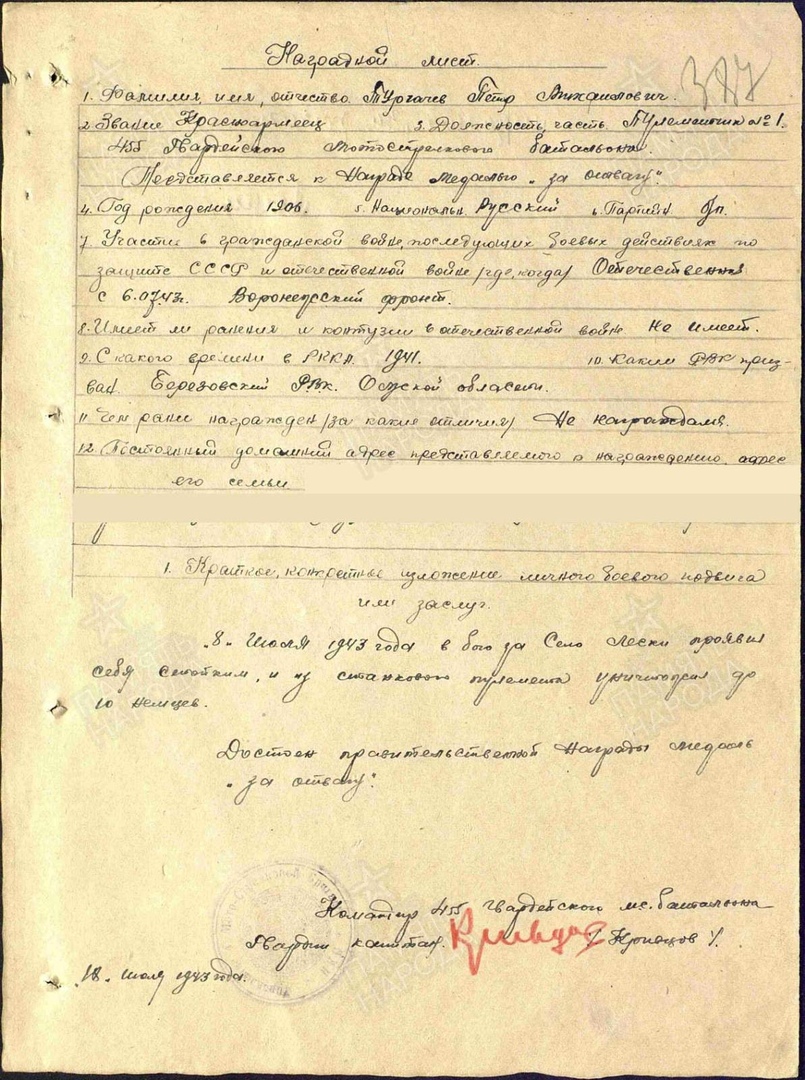 Наградной лист.
387
1. Фамилия, имя, отчество Пургачев Петр Михаилович.
2. Звание Красноармеец 3. Должность, часть Пулеметчик №1.
455 Гвардейского Мотострелкового батальона.
Представляется к Награде медалью „за отвагу".
4. Год рождения 1906. 5. Националь. Русский 6. Партийн
7. Участие в гражданской войне, последующих боевых действиях по
защите СССР и отечественной войне /где, когда/ Отечественная
с 6.07.43г. Воронежский фронт.
8. Имеет ли ранения и контузии в отечественной войне Не имеет.
9. С какого времени в РККА. 1941. 10. Каким РВК приз-
ван. Березовский РВК. Омской области.
11. Чем ранее награжден /за какие отличия/ Не награждался.
12. Постоянный домашний адрес представляемого к награждению, адрес
его семьи
1. Краткое, конкретное изложение личного боевого подвига
или заслуг.
„8" Июля 1943 года в бою за Село Лески проявил
себя стойким, и из станкового пулемета уничтожил до
10 немцев.
Достоен правительственной Награды медаль
„за отвагу".
Командир 455 Гвардейского мс. батальона
Гвардии капитан Кривцов /Кривцов/.
18. июля 1943 года.